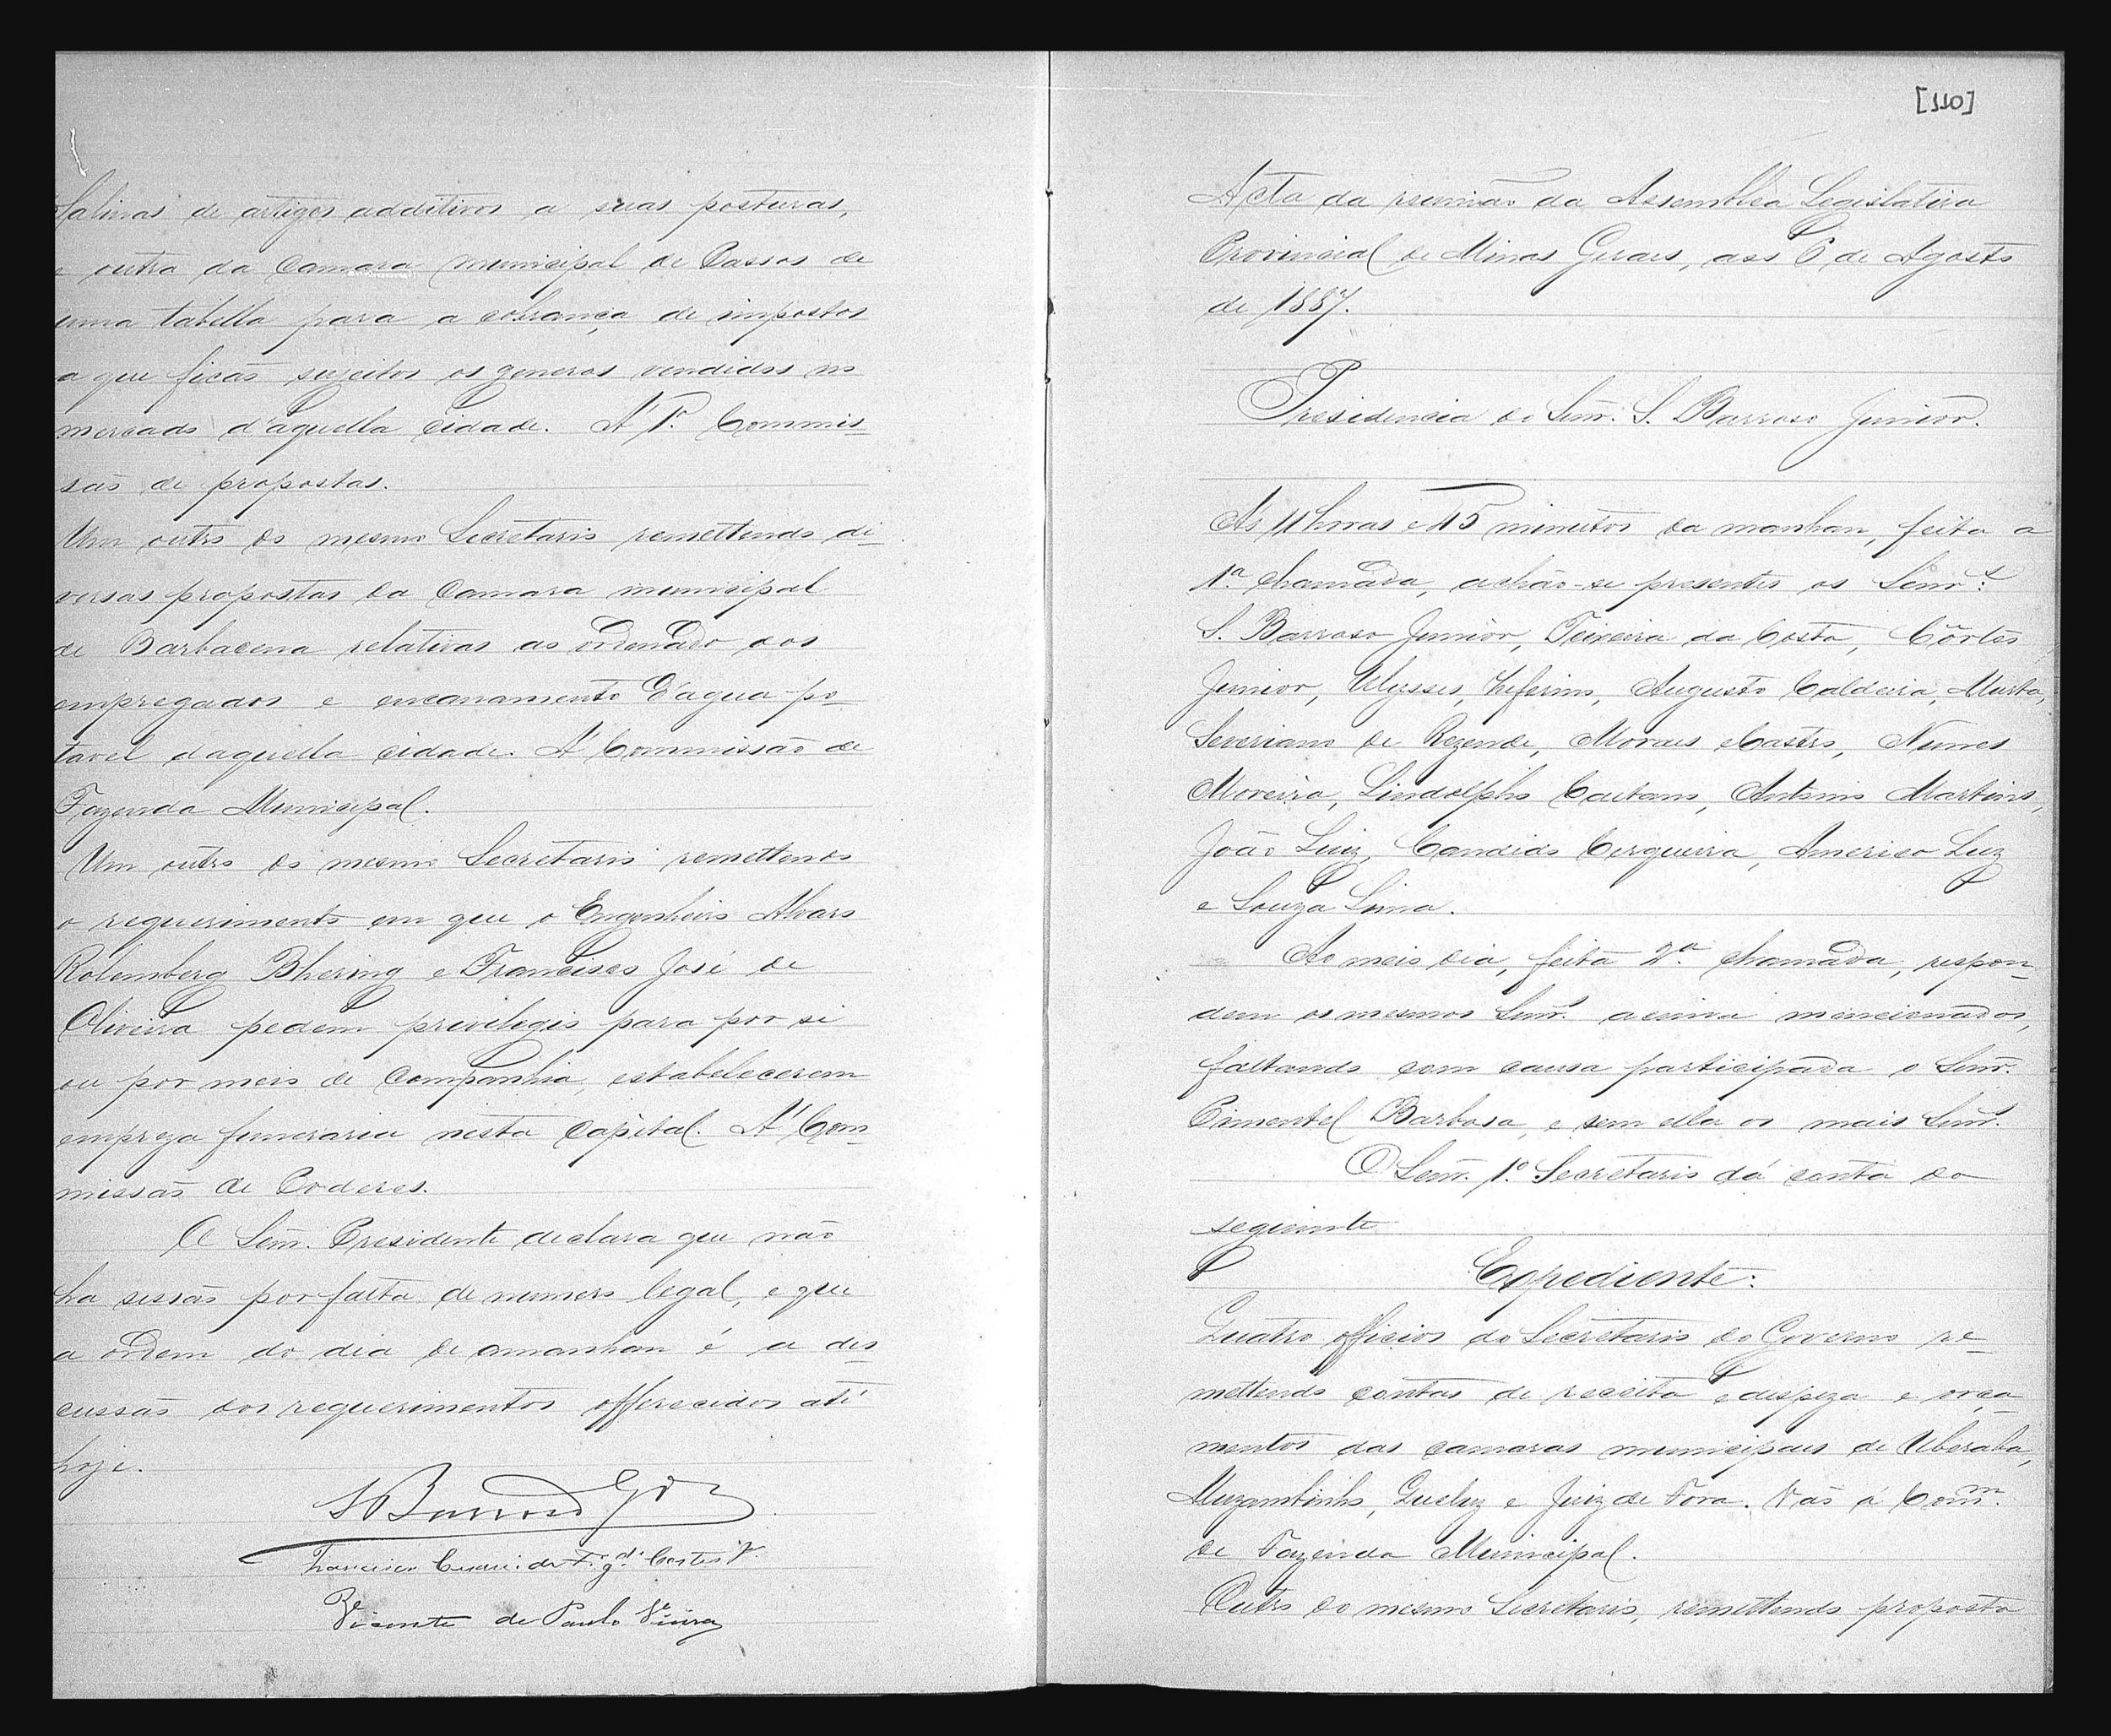 Salinas de artigos additivos a suas posturas,
e outra da Camara municipal de Passos de
uma tabella para a cobrança de impostos
a que ficão sujeitos os generos vendidos no
mercado d'aquella cidade. A' 1ª Commis-
são de propostas.
Um outro do mesmo Secretario remettendo di-
versas propostas da Camara municipal
de Barbacena relativas ao ordenado dos
empregados e encanamento d'agua po-
tavel daquella cidade. A' Commissão de
Fazenda Municipal.
Um outro do mesmo Secretario remettendo
o requerimento em que o Engenheiro Alvaro
Rolemberg Bhering e Francisco José de
Oliveira pedem privilegio para por si
ou por meio de Companhia, estabelecerem
empreza funeraria nesta Capital. A' Com
missão de Poderes.
O Senr. Presidente declara que não
ha sessão por falta de numero legal, e que
a ordem do dia de amanhan é a dis
cussão dos requerimentos offerecidos até
hoje.
S Barroso Jor
Francisco de Cortes Jr.
Vicente de Paulo Vieira
[110]
Acta da reunião da Assemblea Legislativa
Provincial de Minas Geraes, aos 6 de Agosto
de 1887.
Presidencia do Senr. S. Barroso Junior.
As 11 horas e 15 minutos da manhan, feita a
1ª chamada, achão-se presentes os Senrs.
S. Barroso Junior, Teixeira da Costa, Côrtes
Junior, Ulysses, Zeferino, Augusto Caldeira, Murta,
Severiano de Rezende, Moraes e Castro, Nunes
Moreira, Lindolpho Caetano, Antonio Martins,
João Luiz, Candido Cerqueira, Americo Luz
e Souza Lima.
Ao meio dia, feita 2ª chamada, respon-
dem os mesmos Senr. acima mencionados,
faltando com causa participada o Senr.
Pimentel Barbosa, e sem ella os mais Senr.
O Senr. 1º Secretario dá conta do
seguinte
Expediente:
Quatro officios do Secretario do Governo re-
mettendo contas de receita e despeza e orça-
mentos das camaras municipaes de Uberaba,
Muzambinho, Queluz e Juiz de Fora. Vão á Comm.
de Fazenda Municipal.
Outro do mesmo Secretario, remettendo proposta